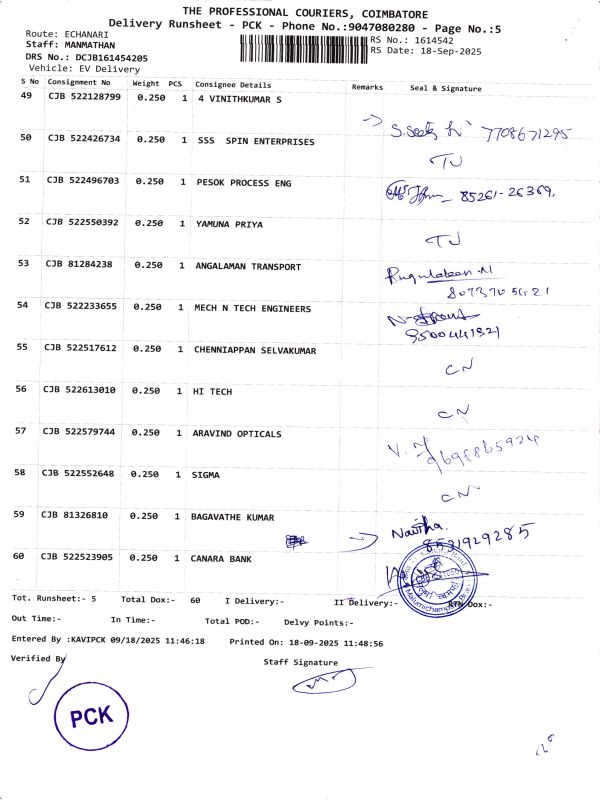 THE PROFESSIONAL COURIERS, COIMBATORE
Delivery Runsheet - PCK - Phone No.:9047080280 - Page No.:5
Route: ECHANARI
RS No.: 1614542
Staff: MANMATHAN
RS Date: 18-Sep-2025
DRS No.: DCJB161454205
Vehicle: EV Delivery
S No Consignment No Weight PCS Consignee Details Remarks Seal & Signature
49 CJB 522128799 0.250 1 4 VINITHKUMAR S
7708671295
50 CJB 522426734 0.250 1 SSS SPIN ENTERPRISES
TJ
51 CJB 522496703 0.250 1 PESOK PROCESS ENG
85261-26369.
52 CJB 522550392 0.250 1 YAMUNA PRIYA
TJ
53 CJB 81284238 0.250 1 ANGALAMAN TRANSPORT
54 CJB 522233655 0.250 1 MECH N TECH ENGINEERS
9500441921
55 CJB 522517612 0.250 1 CHENNIAPPAN SELVAKUMAR
CN
56 CJB 522613010 0.250 1 HI TECH
CN
57 CJB 522579744 0.250 1 ARAVIND OPTICALS
58 CJB 522552648 0.250 1 SIGMA
CN
59 CJB 81326810 0.250 1 BAGAVATHE KUMAR
8531929285
60 CJB 522523905 0.250 1 CANARA BANK
Tot. Runsheet:- 5 Total Dox:- 60 I Delivery:- II Delivery:- RTN Dox:-
Out Time:- In Time:- Total POD:- Delvy Points:-
Entered By :KAVIPCK 09/18/2025 11:46:18 Printed On: 18-09-2025 11:48:56
Verified By Staff Signature
PCK